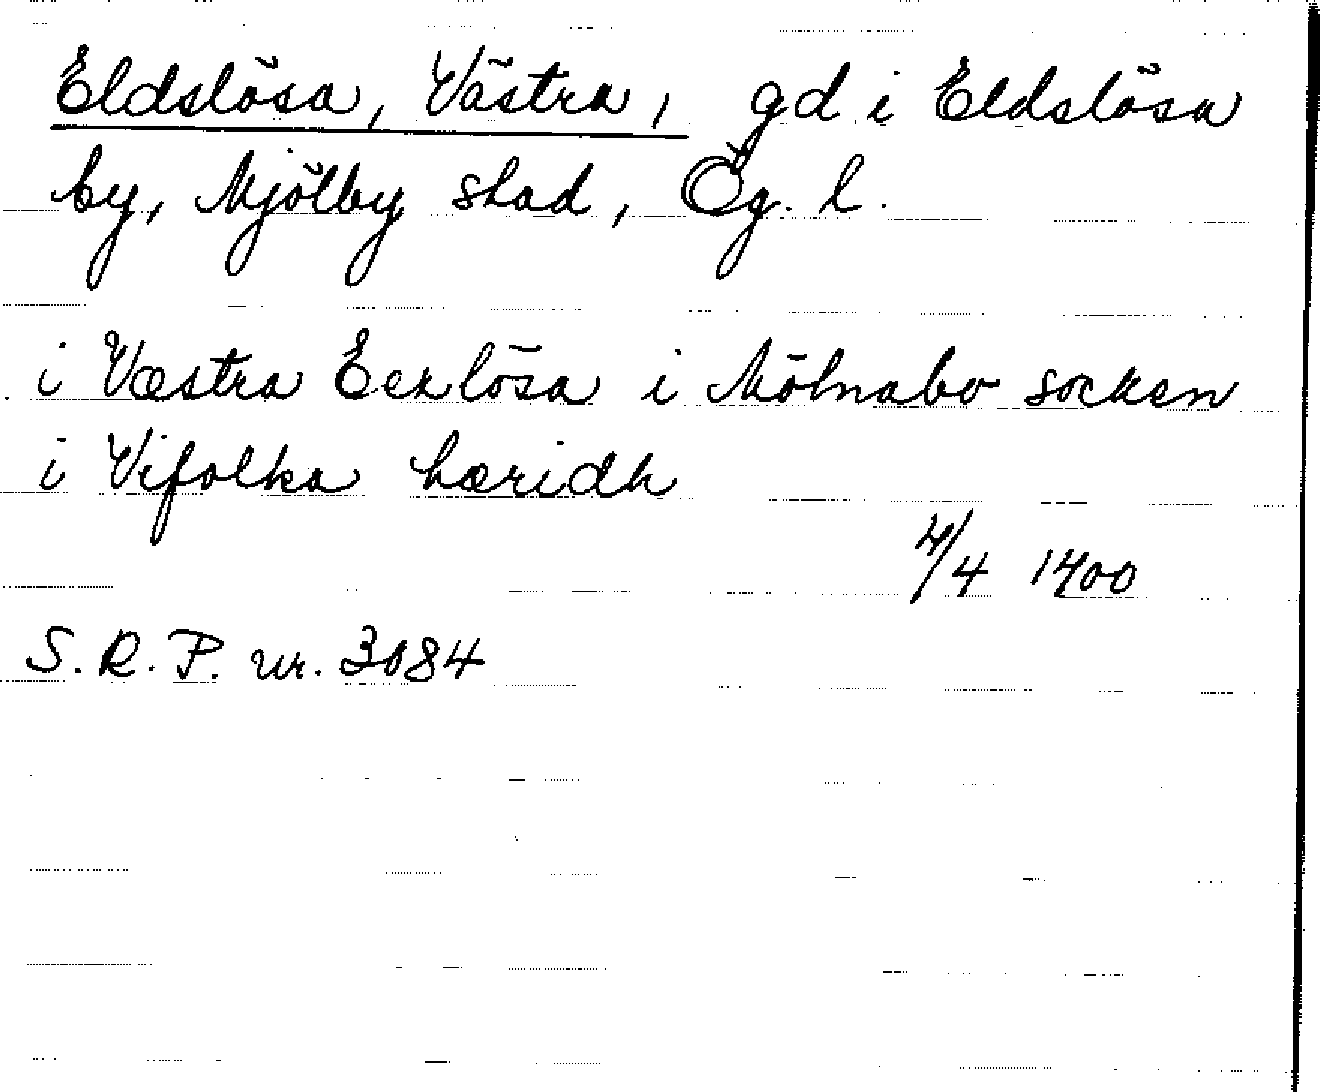 Eldslösa, Västra, gd i Eldslösa
by, Mjölby stad, Ög. l.
i Væstra Eexlösa i Mölnabo socken
i Vifolka hæridh
4/4 1400
S. R. P. nr. 3084